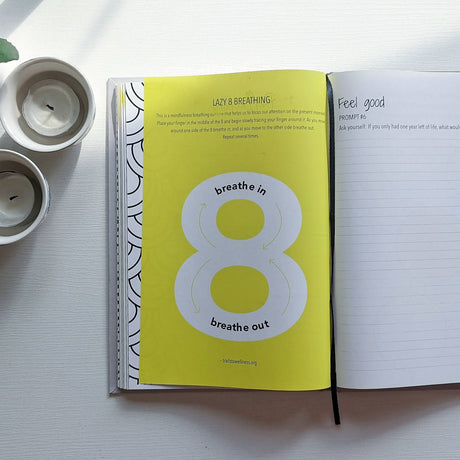 LAZY 8 BREATHING
This is a mindfulness breathing that helps us to focus our attention on the present
Place your finger in the middle of the 8 and begin slowly tracing your finger around it. As you move
around one side of the 8 breathe in, and as you move to the other side breathe out.
Repeat several times.
breathe in
8
breathe out
Feel good
PROMPT #6
Ask yourself: If you only had one year left of life, what would